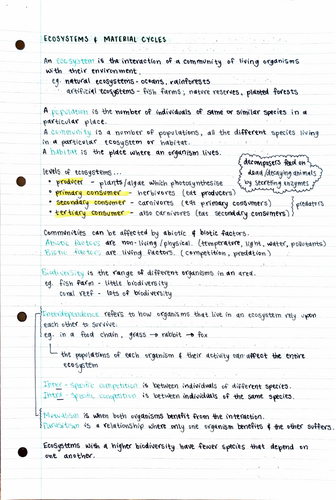 ECOSYSTEMS & MATERIAL CYCLES
An ecosystem is the interaction of a community of living organisms
with their environment.
eg. natural ecosystems - oceans, rainforests
artificial ecosystems - fish farms, nature reserves, planted forests
A population is the number of individuals of same or similar species in a
particular place.
A community is a number of populations, all the different species living
in a particular ecosystem or habitat.
A habitat is the place where an organism lives.
decomposers feed on
dead/decaying animals
by secreting enzymes
levels of ecosystems...
• producer - plants/algae which photosynthesise
• primary consumer - herbivores (eat producers)
• secondary consumer - carnivores (eat primary consumers)
• tertiary consumer - also carnivores (eat secondary consumers)
predators
Communities can be affected by abiotic & biotic factors.
Abiotic factors are non-living/physical. (temperature, light, water, pollutants)
Biotic factors are living factors. (competition, predation)
Biodiversity is the range of different organisms in an area.
eg. fish farm - little biodiversity
coral reef - lots of biodiversity
Interdependence refers to how organisms that live in an ecosystem rely upon
each other to survive.
eg. in a food chain, grass → rabbit → fox
the populations of each organism & their activity can affect the entire
ecosystem
Inter-specific competition is between individuals of different species.
Intra-specific competition is between individuals of the same species.
Mutualism is when both organisms benefit from the interaction.
Parasitism is a relationship where only one organism benefits & the other suffers.
Ecosystems with a higher biodiversity have fewer species that depend on
one another.